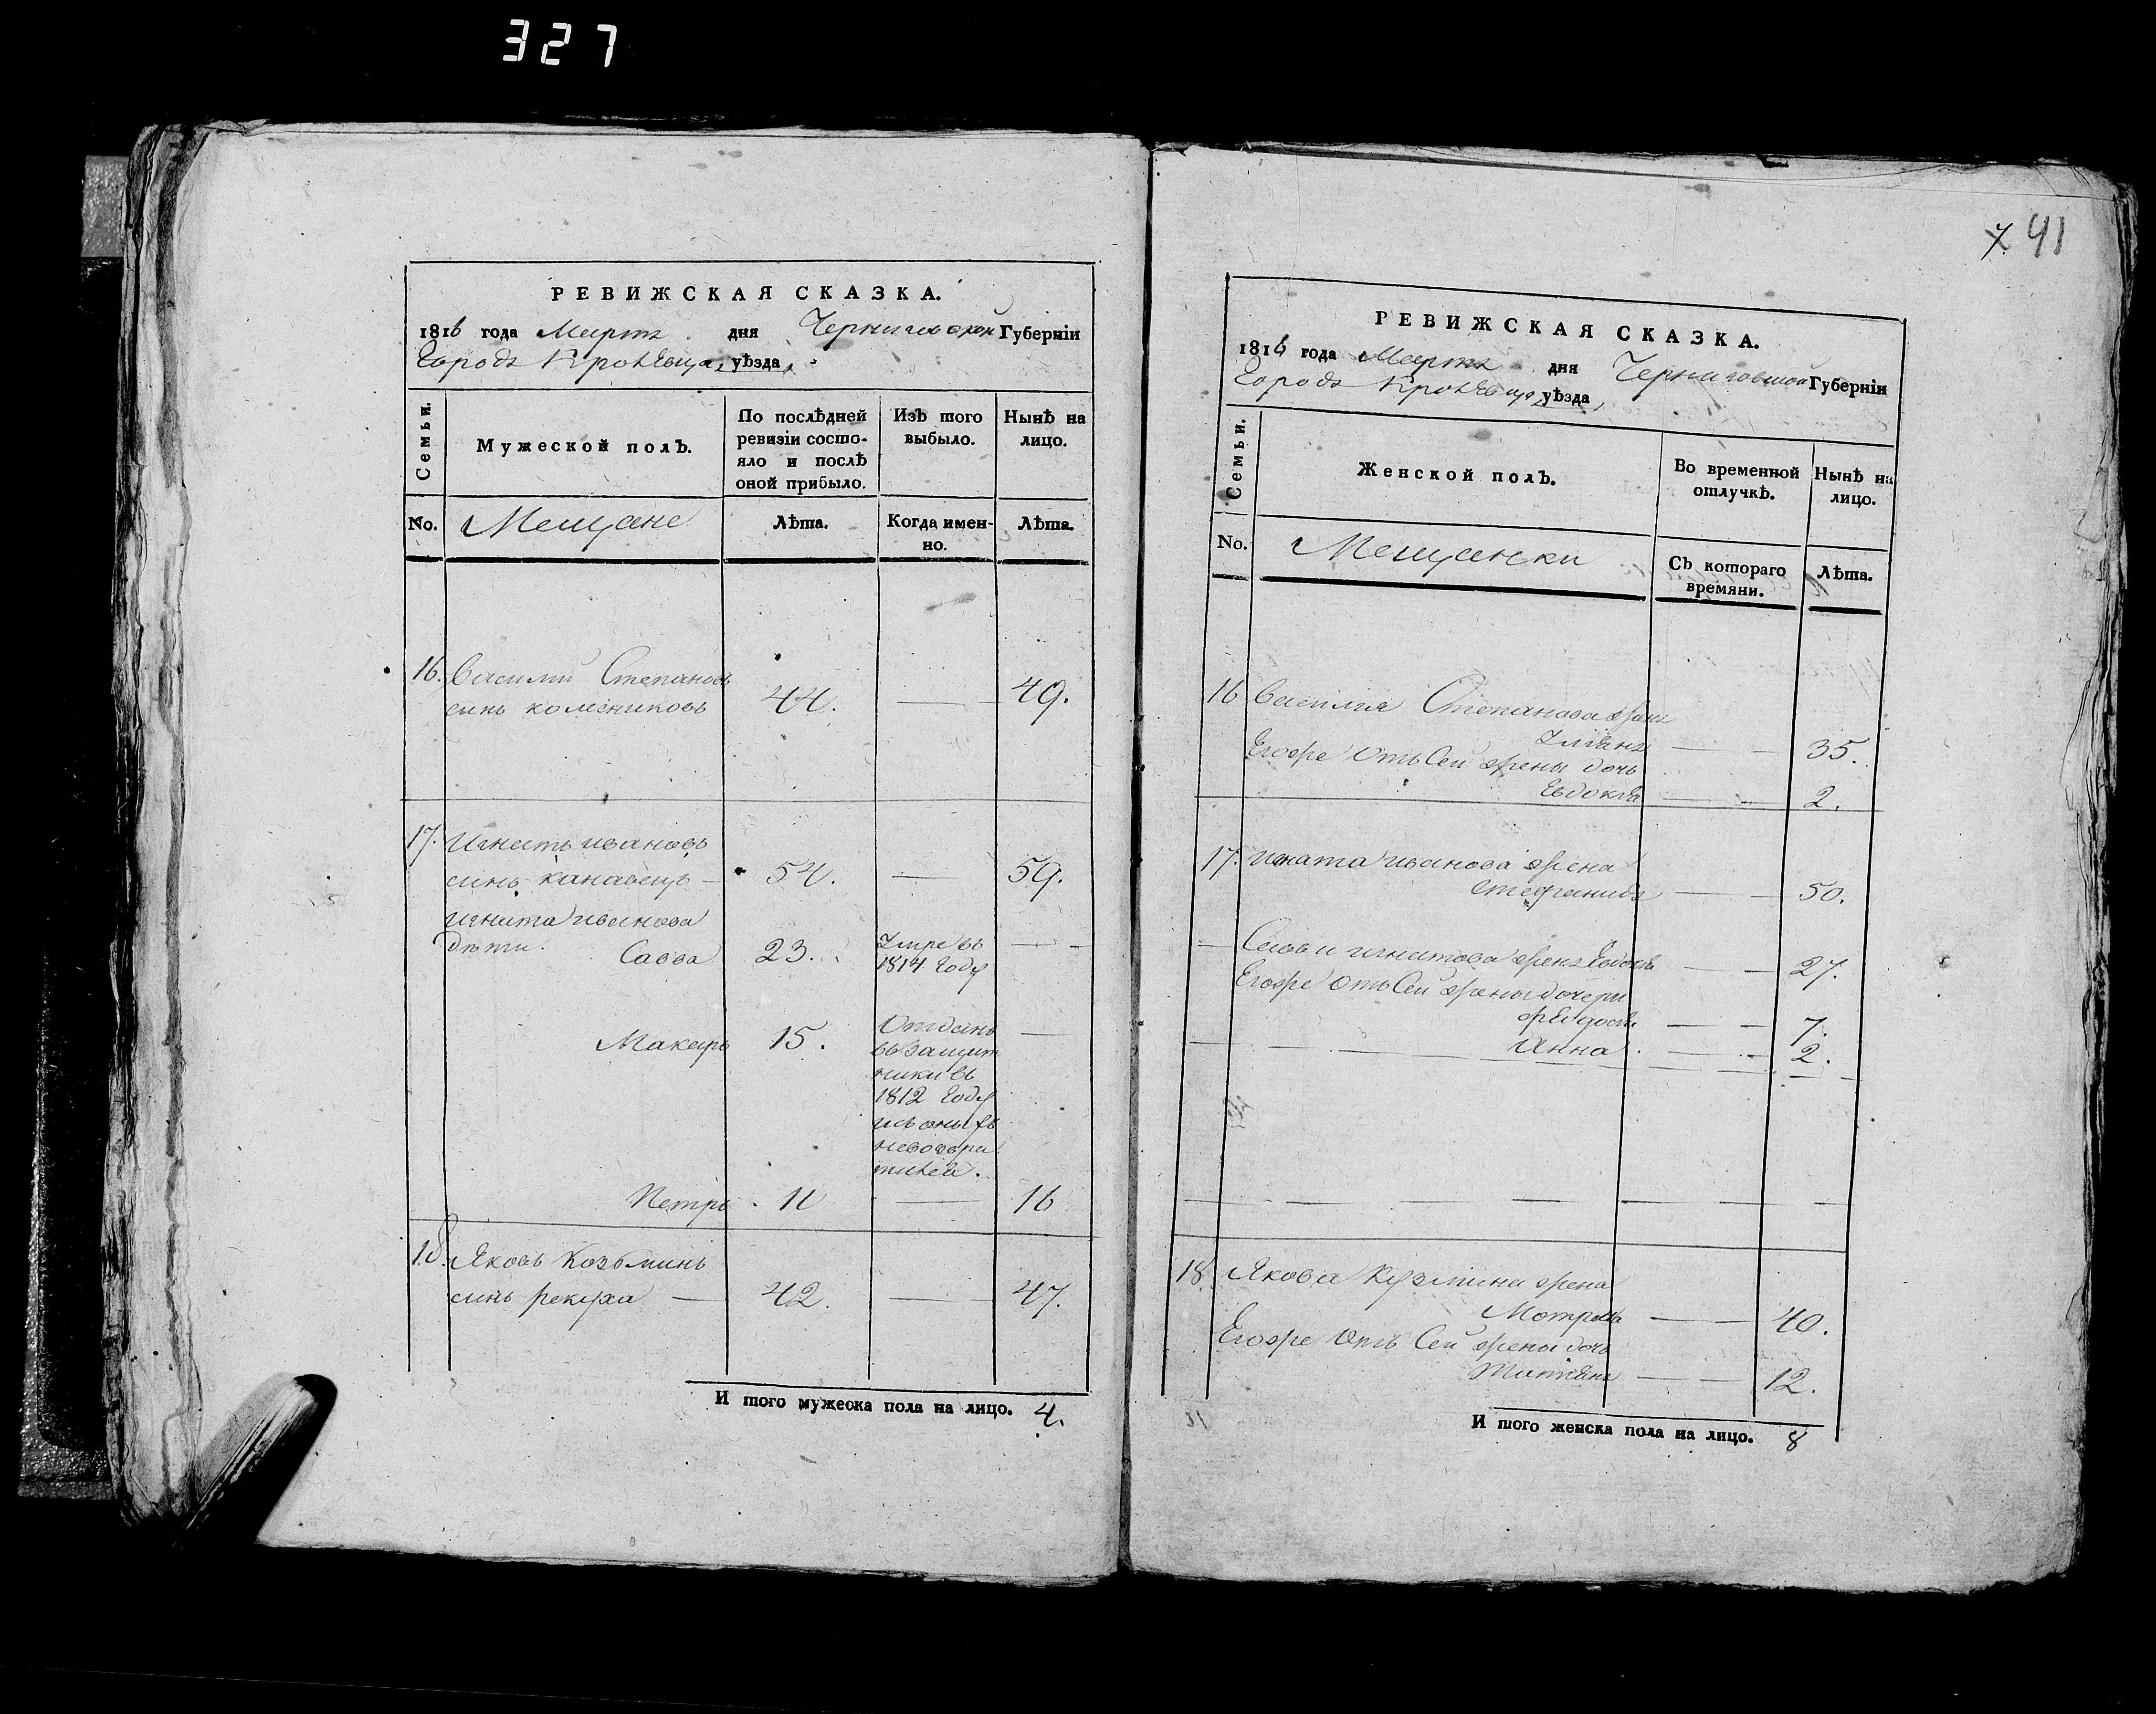 327
7. 41
РЕВИЖСКАЯ СКАЗКА.
1816 года Марта дня Черниговской Губерніи
Города Кролевца, уѣзда,
Семьи.
Мужеской полЪ.
По послѣдней ревизіи состояло и послѣ оной прибыло.
ИзЪ того выбыло.
Нынѣ на лицо.
No.
Мещане
Лѣта.
Когда именно.
Лѣта.
16. Василий Степановъ
синъ колесниковъ 44. — 49.
17. Игнатъ ивановъ
синъ канавецъ — 54. — 59.
игната иванова
дѣти. Савва 23. Умре въ — -
1814 Году
Макаръ 15. Отданъ —
въ защит
ники въ
1812 Году
изъ оныхъ
невозври
тился.
Петръ 11 — 16
18. Яковъ Козьминъ
синъ рекуха — 42. — 47.
И того мужеска пола на лицо. 4.
РЕВИЖСКАЯ СКАЗКА.
1816 года Марта дня Черниговской Губерніи
Города Кролевца, уѣзда,
Семьи.
Женской полЪ.
Во временной отлучкѣ.
Нынѣ на лицо.
No.
Мещанки
СЪ котораго времяни.
Лѣта.
16 Василия Степанова жена
Улияна — — 35.
Егоже отъ Сей жены дочь
Евдокія — — 2.
17. игната иванова жена
Стефанида — — 50.
Саввы игнатова жена Евдокія — — 27.
Егоже отъ Сей жены дочери
— — 7.
Анна — — 2.
18 Якова Кузмина жена
Мотрона — — 40.
Егоже отъ Сей жены дочь
Татіана — — 12.
И того женска пола на лицо. 8